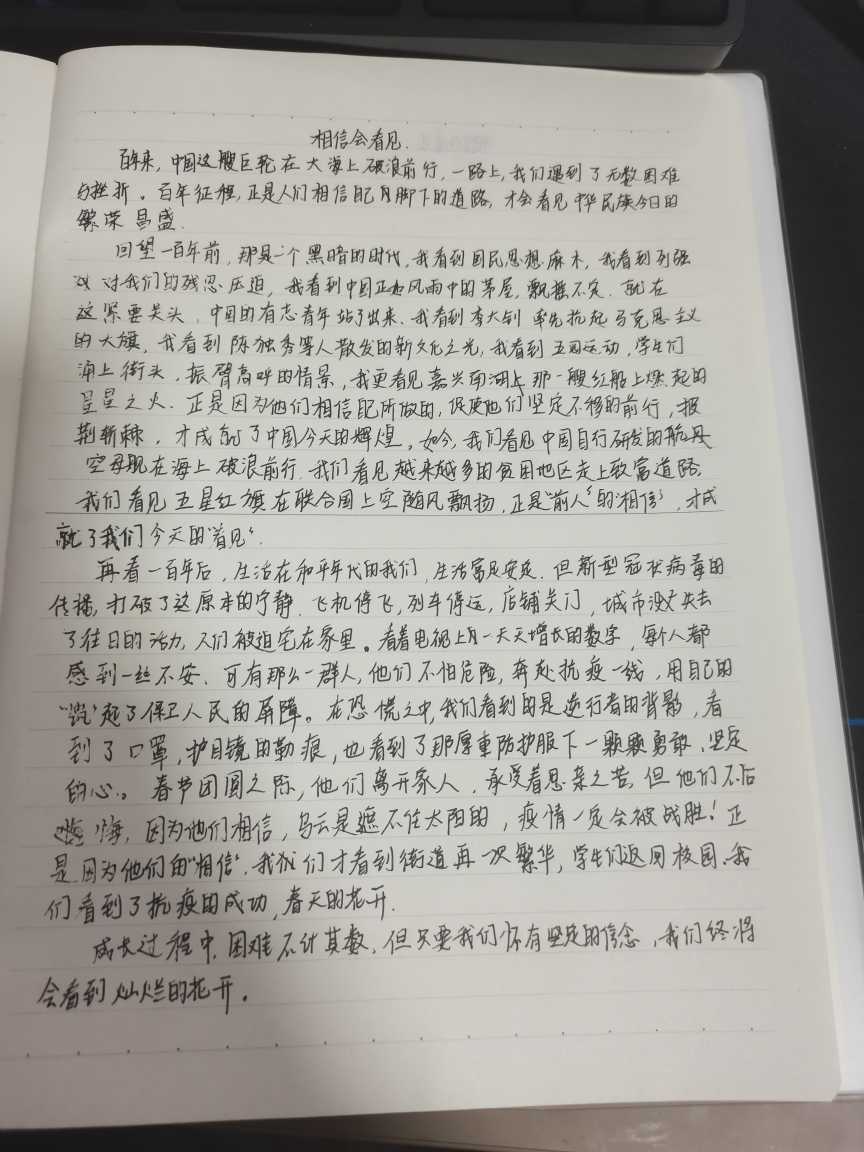 相信会看见.
百年来,中国这艘巨轮在大海上破浪前行,一路上,我们遇到了无数困难
与挫折。百年征程,正是人们相信自己脚下的道路,才会看见中华民族今日的
繁荣昌盛.
回望一百年前,那是一个黑暗的时代,我看到国民思想麻木,我看到列强
对我们的残忍压迫,我看到中国正如风雨中的茅屋,飘摇不定.就在
这紧要关头,中国的有志青年站了出来.我看到李大钊率先扛起马克思主义
的大旗,我看到陈独秀等人散发的新文化之光,我看到五四运动,学生们
涌上街头,振臂高呼的情景,我更看见嘉兴南湖上那一艘红船上燃起的
星星之火.正是因为他们相信自己所做的,促使他们坚定不移的前行,披
荆斩棘,才成就了中国今天的辉煌。如今,我们看见中国自行研发的航母
空母舰在海上破浪前行.我们看见越来越多的贫困地区走上致富道路,
我们看见五星红旗在联合国上空随风飘扬,正是"前人"的"相信",才成
就了我们今天的"看见".
再看一百年后,生活在和平年代的我们,生活富足安定.但新型冠状病毒的
传播,打破了这原本的宁静.飞机停飞,列车停运,店铺关门,城市失去
了往日的活力,人们被迫宅在家里。看着电视上一天天增长的数字,每个人都
感到一丝不安.可有那么一群人,他们不怕危险,奔赴抗疫一线,用自己的
起了保卫人民的屏障。在恐慌之中,我们看到的是逆行者的背影,看
到了口罩,护目镜的勒痕,也看到了那厚重防护服下一颗颗勇敢、坚定
的心。春节团圆之际,他们离开家人,承受着思亲之苦,但他们不后
悔,因为他们相信,乌云是遮不住太阳的,疫情一定会被战胜!正
是因为他们的"相信",我们才看到街道再一次繁华,学生们返回校园,我
们看到了抗疫的成功,春天的花开.
成长过程中,困难不计其数,但只要我们怀有坚定的信念,我们终将
会看到灿烂的花开。